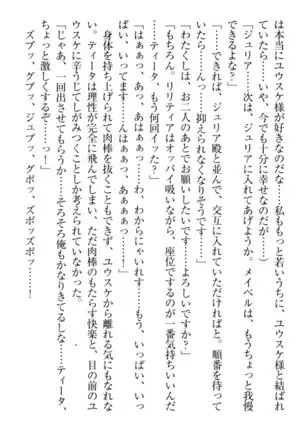 は本当にユウスケ様が好きなのだな……私ももっと若いうちに、ユウスケ様と結ばれ
ていたら……いや、今でも十分に幸せなのだが……）
「ジュリア……次は、ジュリアに入れてあげようか。メイベルは、もうちょっと我慢
できるよな？」
「はい……んっ……抑えられなくなりそうです……」
「わたくしは、ジュリア殿と並んで、交互に入れていただければと。順番を待って
……は、お二人のあとでお願いしたいです……よろしいですか？」
「もちろん。リリティアはオッパイ吸いながら、座位でするのが一番気持ちいいんだ
……ティータ、もう何回イッた？」
「はぁぁっ、あっ、あはぁっ……わ、わからにゃいれす……もう、いっぱい、いっ
ぱい、いってます……んはぁぁっ、あぁぁぁっ……！」
身体を持ち上げられて肉棒を抜くこともできず、ユウスケから離れる気にもなれな
い。ティータは理性が完全に飛んでしまい、ただ肉棒のもたらす快楽と、目の前のユ
ウスケに辛うじてしがみつくことしか考えられていなかった。
「じゃあ、一回出させてもらうか……そろそろ俺もかなりきてるしな……ティータ、
ちょっと激しくするぞ……っ！」
ズブッ、グブッ、ジュブッ、グボッ、ズボッズボッ……！